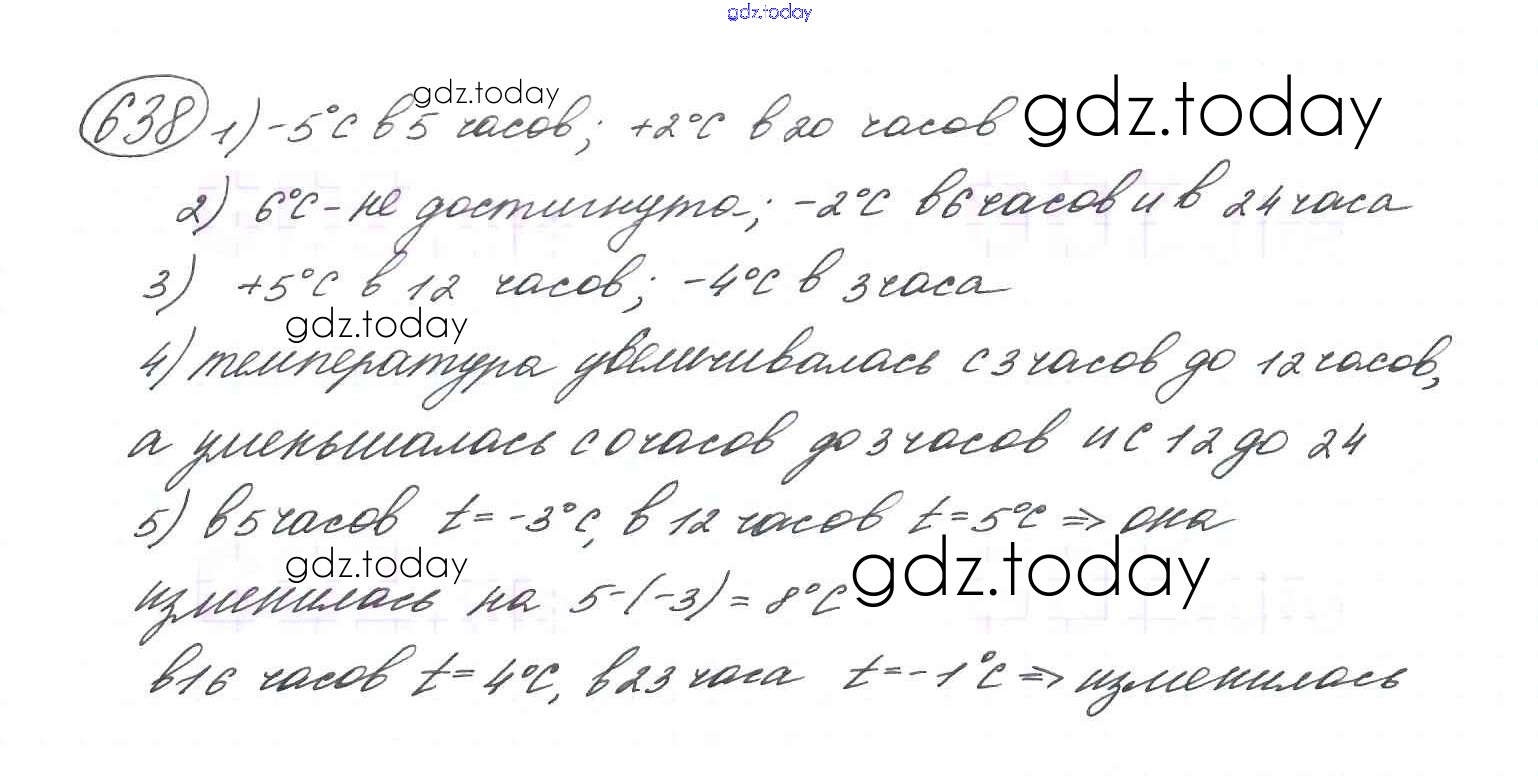 gdz.today
638 1) -5°C в 5 часов; +2°C в 20 часов
gdz.today gdz.today
2) 6°C - не достигнута; -2°C в 6 часов и в 24 часа
3) +5°C в 12 часов; -4°C в 3 часа
gdz.today
4) температура увеличивалась с 3 часов до 12 часов,
а уменьшалась с 0 часов до 3 часов и с 12 до 24
5) в 5 часов t = -3°C, в 12 часов t = 5°C => она
gdz.today gdz.today
изменилась на 5-(-3) = 8°C
в 16 часов t = 4°C, в 23 часа t = -1°C => изменилась